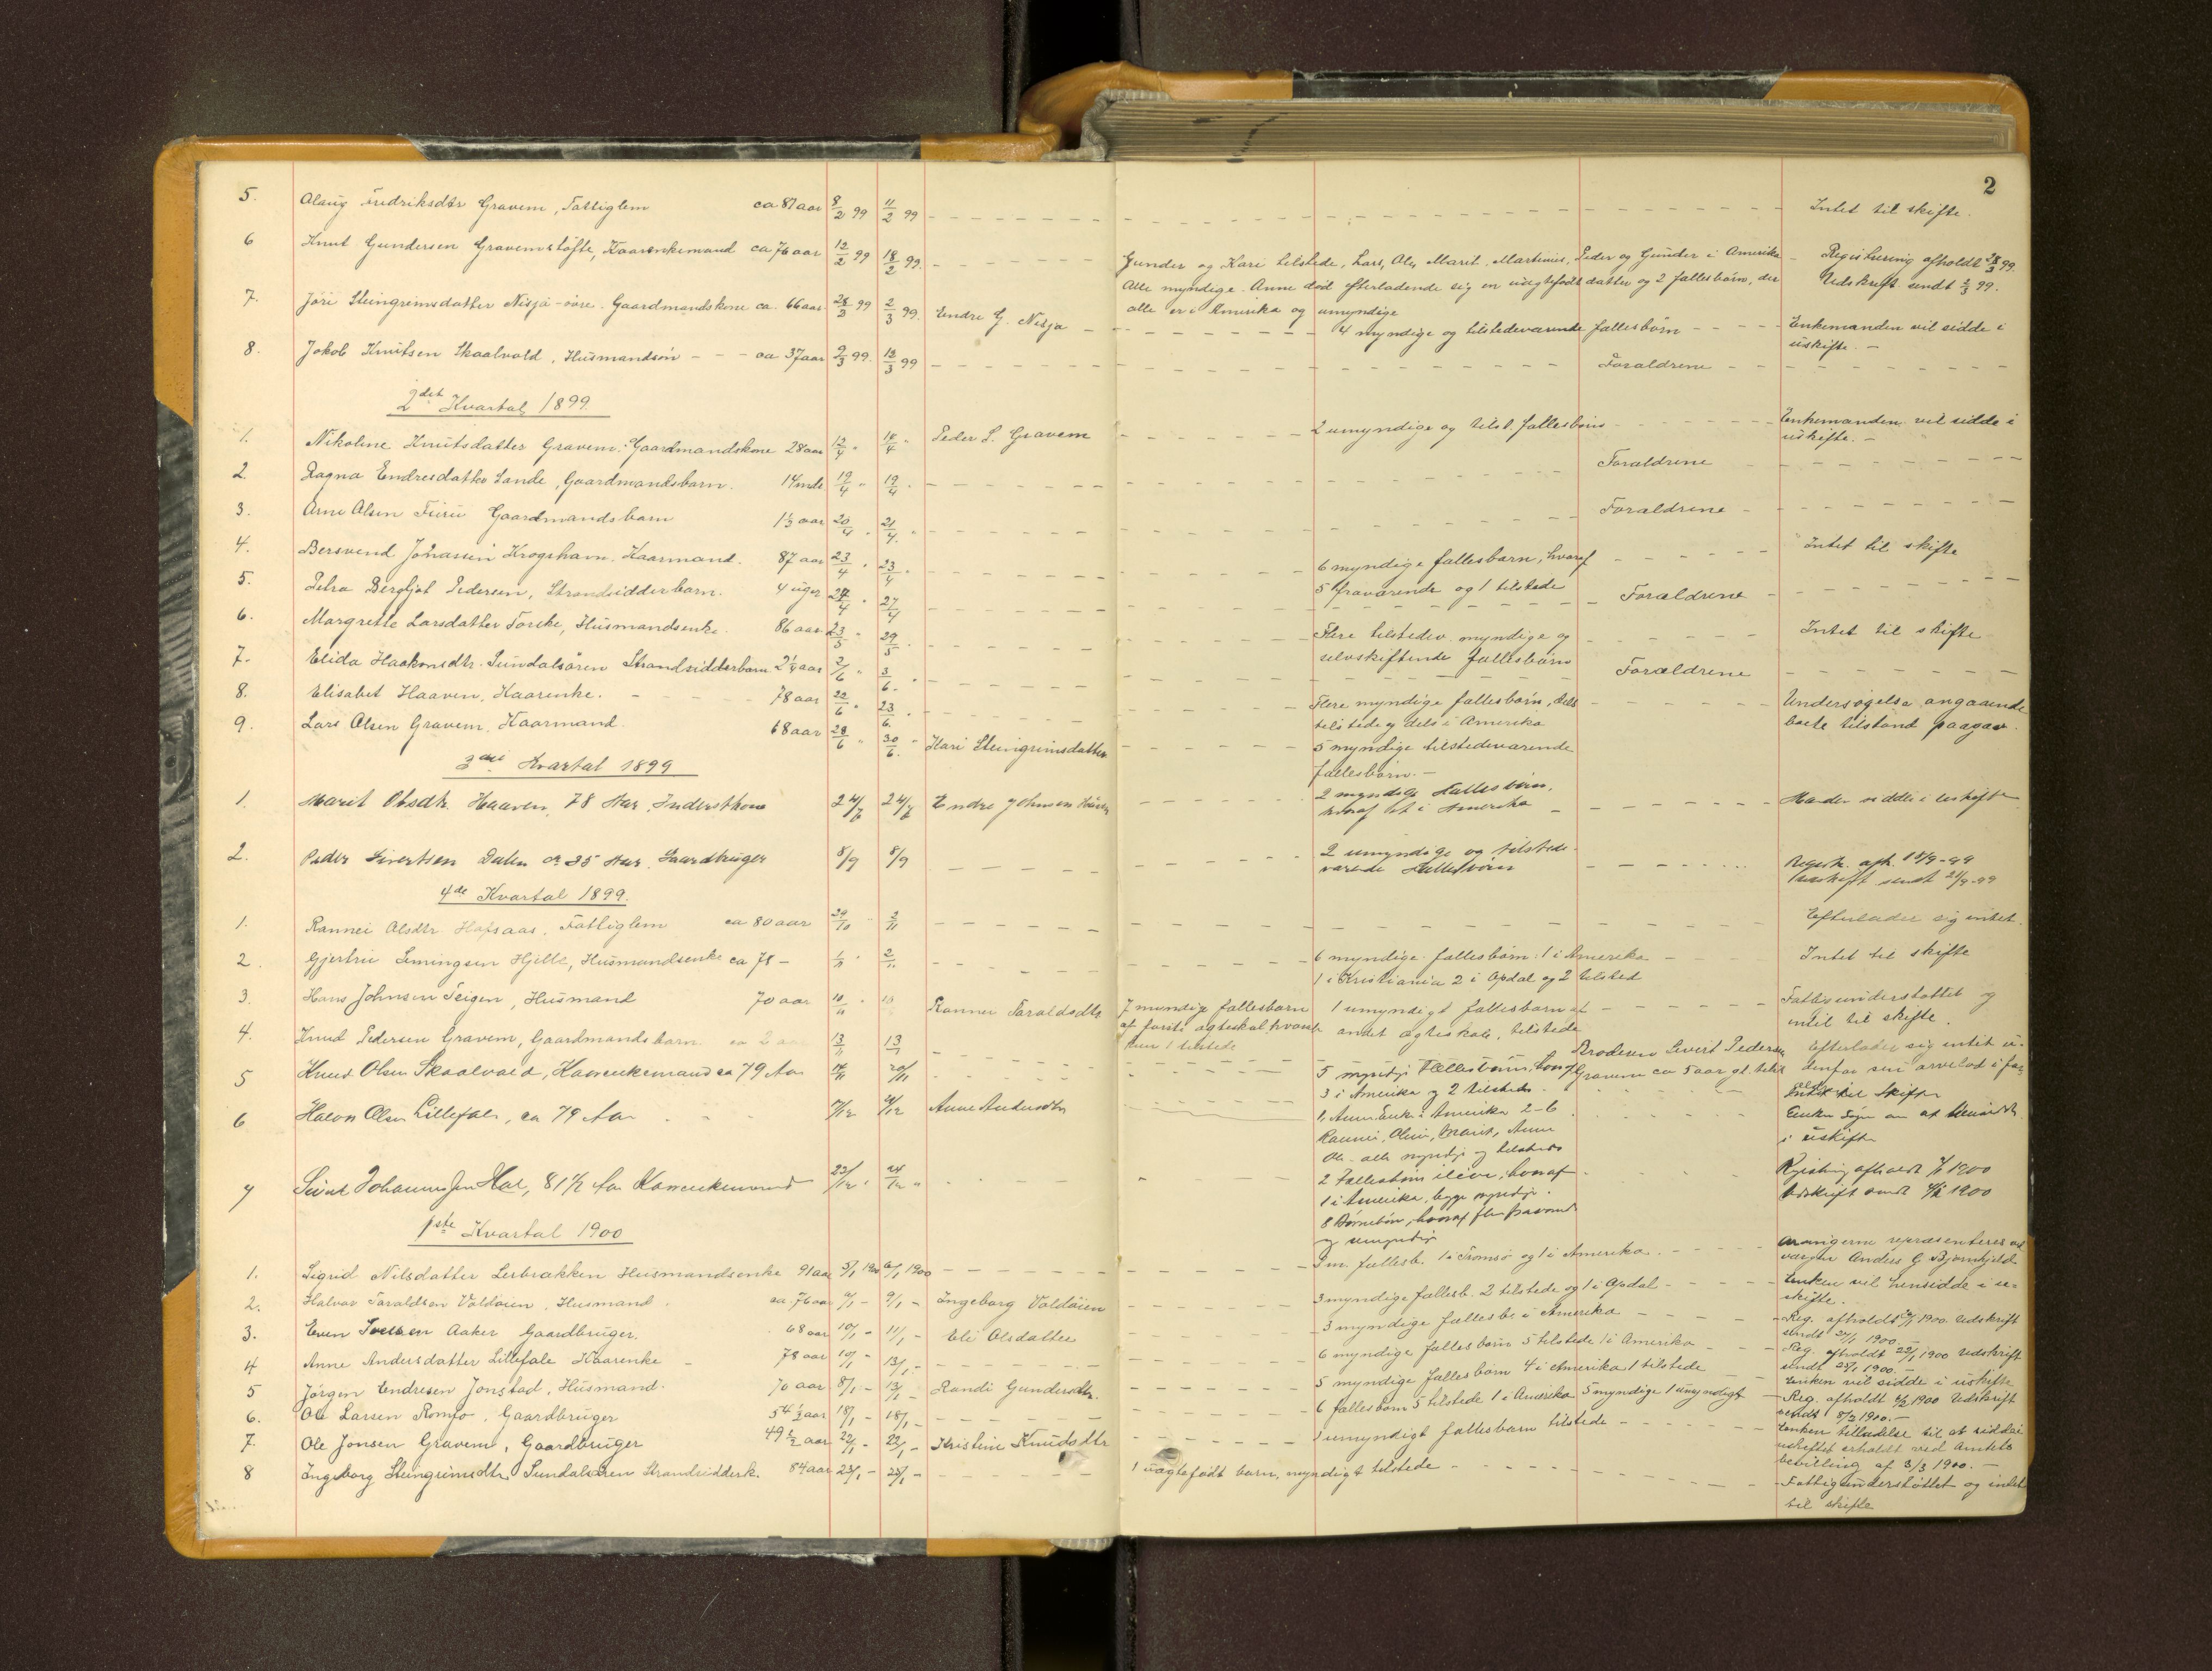 2
5. Alaug Fredriksdtr Gravem, Fattiglem ca 87 aar 8/2 99 11/2 99 Intet til skifte.
6 Knut Gundersen Gravemsløfte, Kaarenkemand ca 76 aar 12/2 99 18/2 99. Gunder og Kari tilstede, Lars, Ole, Marit, Martinus, Peder og Gunder i Amerika Registrering afholdt 28/3 99.
Alle myndige. Anne død efterladende sig en uægtefødt datter og 2 fællesbørn, der Udskrift sendt 2/3 99.
alle er i Amerika og umyndige
7. Jøri Steingrimsdatter Nisja-øvre. Gaardmandskone ca. 66 aar 28/2 99 2/3 99. Endre G. Nisja 4 myndige og tilstedeværende fællesbørn Enkemanden vil sidde i
uskifte. –
8. Jakob Knutsen Skaalvold, Husmandsøn - - - ca 37 aar 9/3 99. 12/3 99 Forældrene
2det Kvartal 1899.
1. Nikoline Knutsdatter Gravem: Gaardmandskone 28 aar 12/4 " 14/4 " Peder S. Gravem 2 umyndige og tilst. fællesbørn Enkemanden vil sidde i
uskifte. –
2. Ragna Endresdatter Sande, Gaardmandsbarn. 14 mdr 19/4 " 19/4 " Forældrene
3. Arne Olsen Furu Gaardmandsbarn 1½ aar 20/4 " 21/4 " Forældrene
4. Bersvend Johnssen Krogshavn. Kaarmand. 87 aar 23/4 " 23/4 " 6 myndige fællesbarn, hvoraf Intet til skifte
5 fraværende og 1 tilstede
5. Petra Bergljot Pedersen, Strandsidderbarn. 4 uger 24/4 " 27/4 Forældrene
6. Margrette Larsdatter Torske, Husmandsenke. 86 aar 23/5 " 29/5 " Flere tilstedev. myndige og Intet til skifte
selvskiftende fællesbørn
7. Elida Haakonsdtr. Sundalsøren Strandsidderbarn 2¼ aar 2/6 " 3/6 " Forældrene
8. Elisabet Haaven, Kaarenke. 78 aar 22/6 " 23/6 " Flere myndige fællesbørn, dels Undersøgelse angaaende
tilstede og dels i Amerika boets tilstand paagaar.
9. Lars Olsen Gravem, Kaarmand. 68 aar 28/6 " 30/6 " Kari Steingrimsdatter 5 myndige tilstedeværende
fællesbørn. –
3die Kvartal 1899
1. Marit Olsdtr. Haaven, 78 Aar, Inderstkone 24/7 24/7 Endre Johnsen Haaven 2 myndige Fællesbørn,
hvoraf et i Amerika Manden sidder i uskifte
2. Peder Sivertsen Dalen ca 35 Aar. Gaardbruger 8/9 8/9 2 umyndige og tilstede-
værende Fællesbørn Registr. afh. 15/9-99
Udskrift sendt 21/9-99
4de Kvartal 1899.
1. Rannei Olsdtr Hafsaas. Fattiglem ca 80 aar 29/10 " 2/11 Efterlader sig intet.
2. Gjertru Simingsen Hjelle, Husmandsenke ca 78 – 1/11 " 2/11 6 myndige fællesbørn: 1 i Amerika Intet til skifte
1 i Kristiania 2 i Opdal og 2 tilsted
3. Hans Johnsen Teigen, Husmand 70 aar 10/11 " 13 Rannei Taraldsdtr 7 myndig fællesbørn 1 umyndigt fællesbarn af Fattigunderstøttet og
af første ægteskab hvoraf andet ægteskab, tilstede intet til skifte.
kun 1 tilstede
4. Knud Pedersen Gravem, Gaardmandsbarn ca 2 aar 13/11 13/11 Broderen Sivert Pedersen Efterlader sig intet u-
Gravem ca 5 aar gl. tilst denfor sin arvelod i far
5 Knud Olsen Skaalvold, Kaarenkemand ca 79 Aar 14/11 20/11 5 myndige Fællesbørn, hvoraf
3 i Amerika og 2 tilstede. Intet til skifte
6 Halvor Olsen Lillefale, ca 79 Aar 17/12 24/12 Anne Andersdtr 1, Anne Enke i Amerika 2-6 Enken søger om at hensidde
Rannei, Oline, Marit, Anne i uskifte
Ole - alle myndige og tilstede
7 Sivert Johannesen Hol, 81½ Aar Kaarenkemand 23/12 " 24/12 " 2 Fællesbørn ilive, hvoraf Registrering afholdt 1900
1 i Amerika, begge myndige. Udskrift sendt 1900
8 Børnebørn, hvoraf flere fraværende
og umyndige
1ste Kvartal 1900
1. Sigrid Nilsdatter Lerbrækken Husmandsenke 91 aar 5/1 1900 6/1 1900 3 m. fællesb. 1 i Tromsø og 1 i Amerika. Arvingerne repræsenteres ved
værgen Anders G Bjørnhjeld
2. Halvor Taraldsen Voldøien, Husmand ca. 76 aar 9/1 – 9/1 – Ingeborg Voldøien 3 myndige fællesb. 2 tilstede og 1 i Opdal Enken vil hensidde i u-
skifte.
3. Even Iversen Aaker Gaardbruger. 68 aar 10/1 – 11/1 – Eli Olsdatter 3 myndige fællesbø i Amerika Reg. afholdt 1900. Udskrift
sendt 24/1 1900. –
4 Anne Andersdatter Lillefale Kaarenke 78 aar 10/1 – 13/1 – 6 myndige fællesbørn 5 tilstede 1 i Amerika Reg. afholdt 22/1 1900 Udskrift
sendt 25/1 1900. –
5 Jørgen Endresen Jonstad, Husmand. 70 aar 8/1 – 13/1 – Randi Gundersdtr. 5 myndige fællesbørn 4 i Amerika 1 tilstede Enken vil sidde i uskifte
6. Ole Larsen Romfo, Gaardbruger 54½ aar 18/1 – 18/1 – 6 fællesbørn 5 tilstede 1 i Amerika 5 myndige 1 umyndigt Reg. afholdt 6/2 1900 Udskrift
sendt 8/2 1900. –
7. Ole Jonsen Gravem, Gaardbruger 49½ aar 22/1 – 22/1 – Kristine Knudsdtr 1 umyndigt fællesbarn tilstede Enken tilladelse til at sidde i
uskiftet erholdt ved Amtets
bevilling af 3/3 1900. –
8 Ingeborg Steingrimsdtr. Sundalsøren Strandsidderk. 84 aar 23/1 – 25/1 – 1 uægtefødt barn, myndigt tilstede Fattigunderstøttet og intet
til skifte